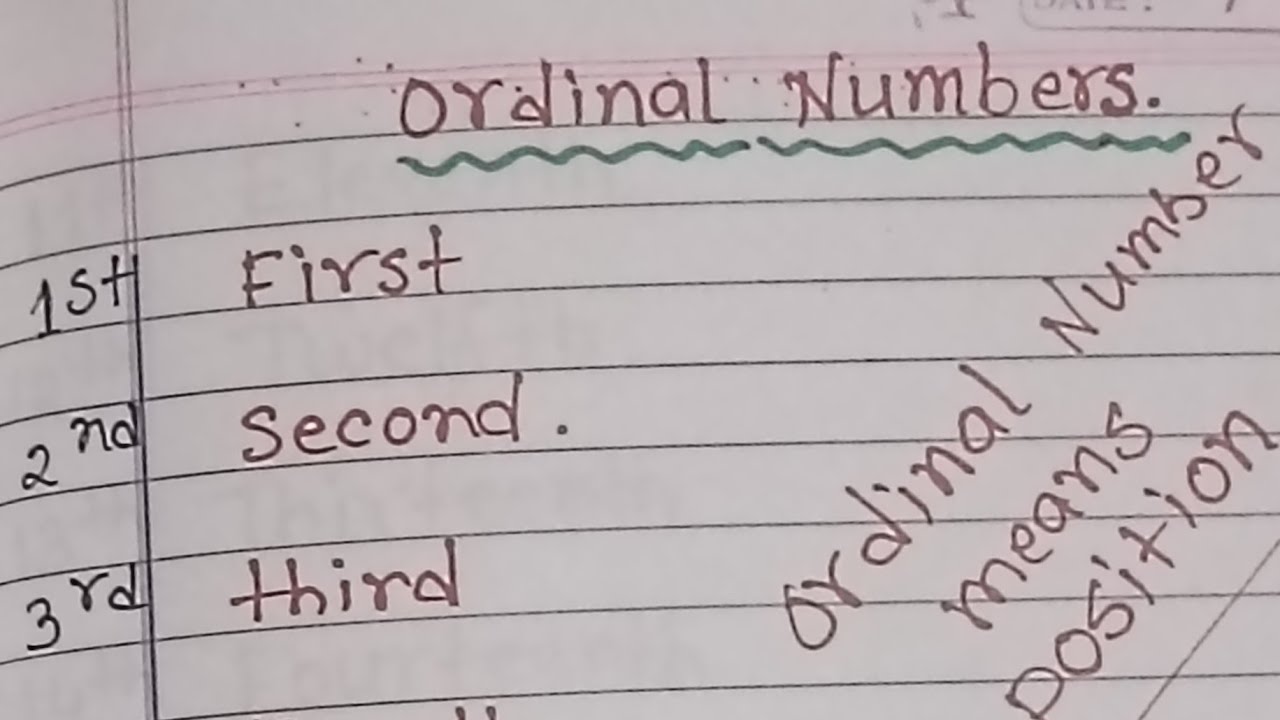 Ordinal Numbers.
1st First
2nd Second.
3rd third
Ordinal Number
means
position